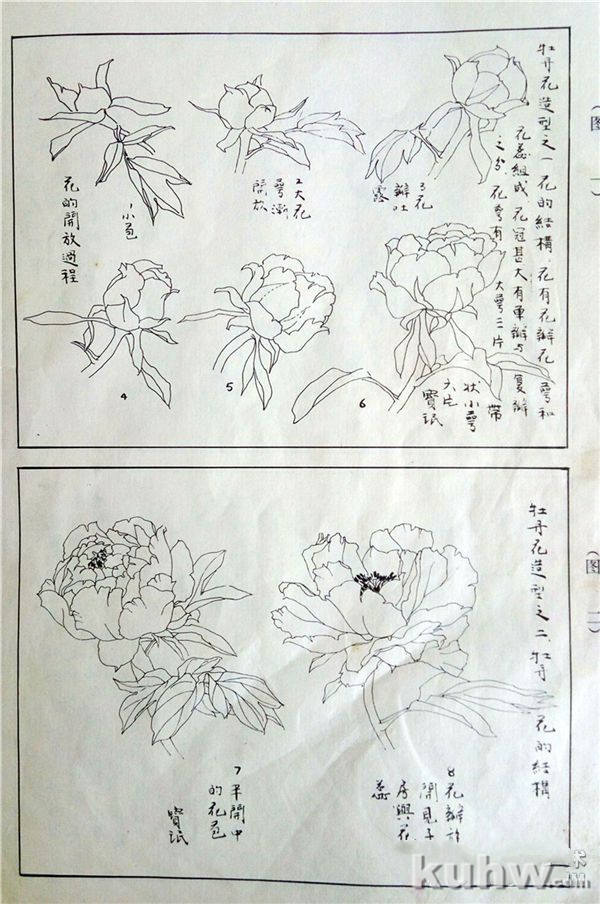 牡丹花造型之一 花的結構.花有花瓣花萼和
花蕊組成 花冠甚大有重瓣与复瓣
之分. 花萼有 大萼三片 帶
狀小萼
六片
寶珉
花的開放過程
小包
2 大花
萼漸
開放
3 花
瓣吐
露
4
5
6
牡丹花造型之二、牡丹 花的結構
7 半開中
的花包
寶珉
8 花瓣
開見子
房與花
蕊
(图一)
(图二)
kuhw.com